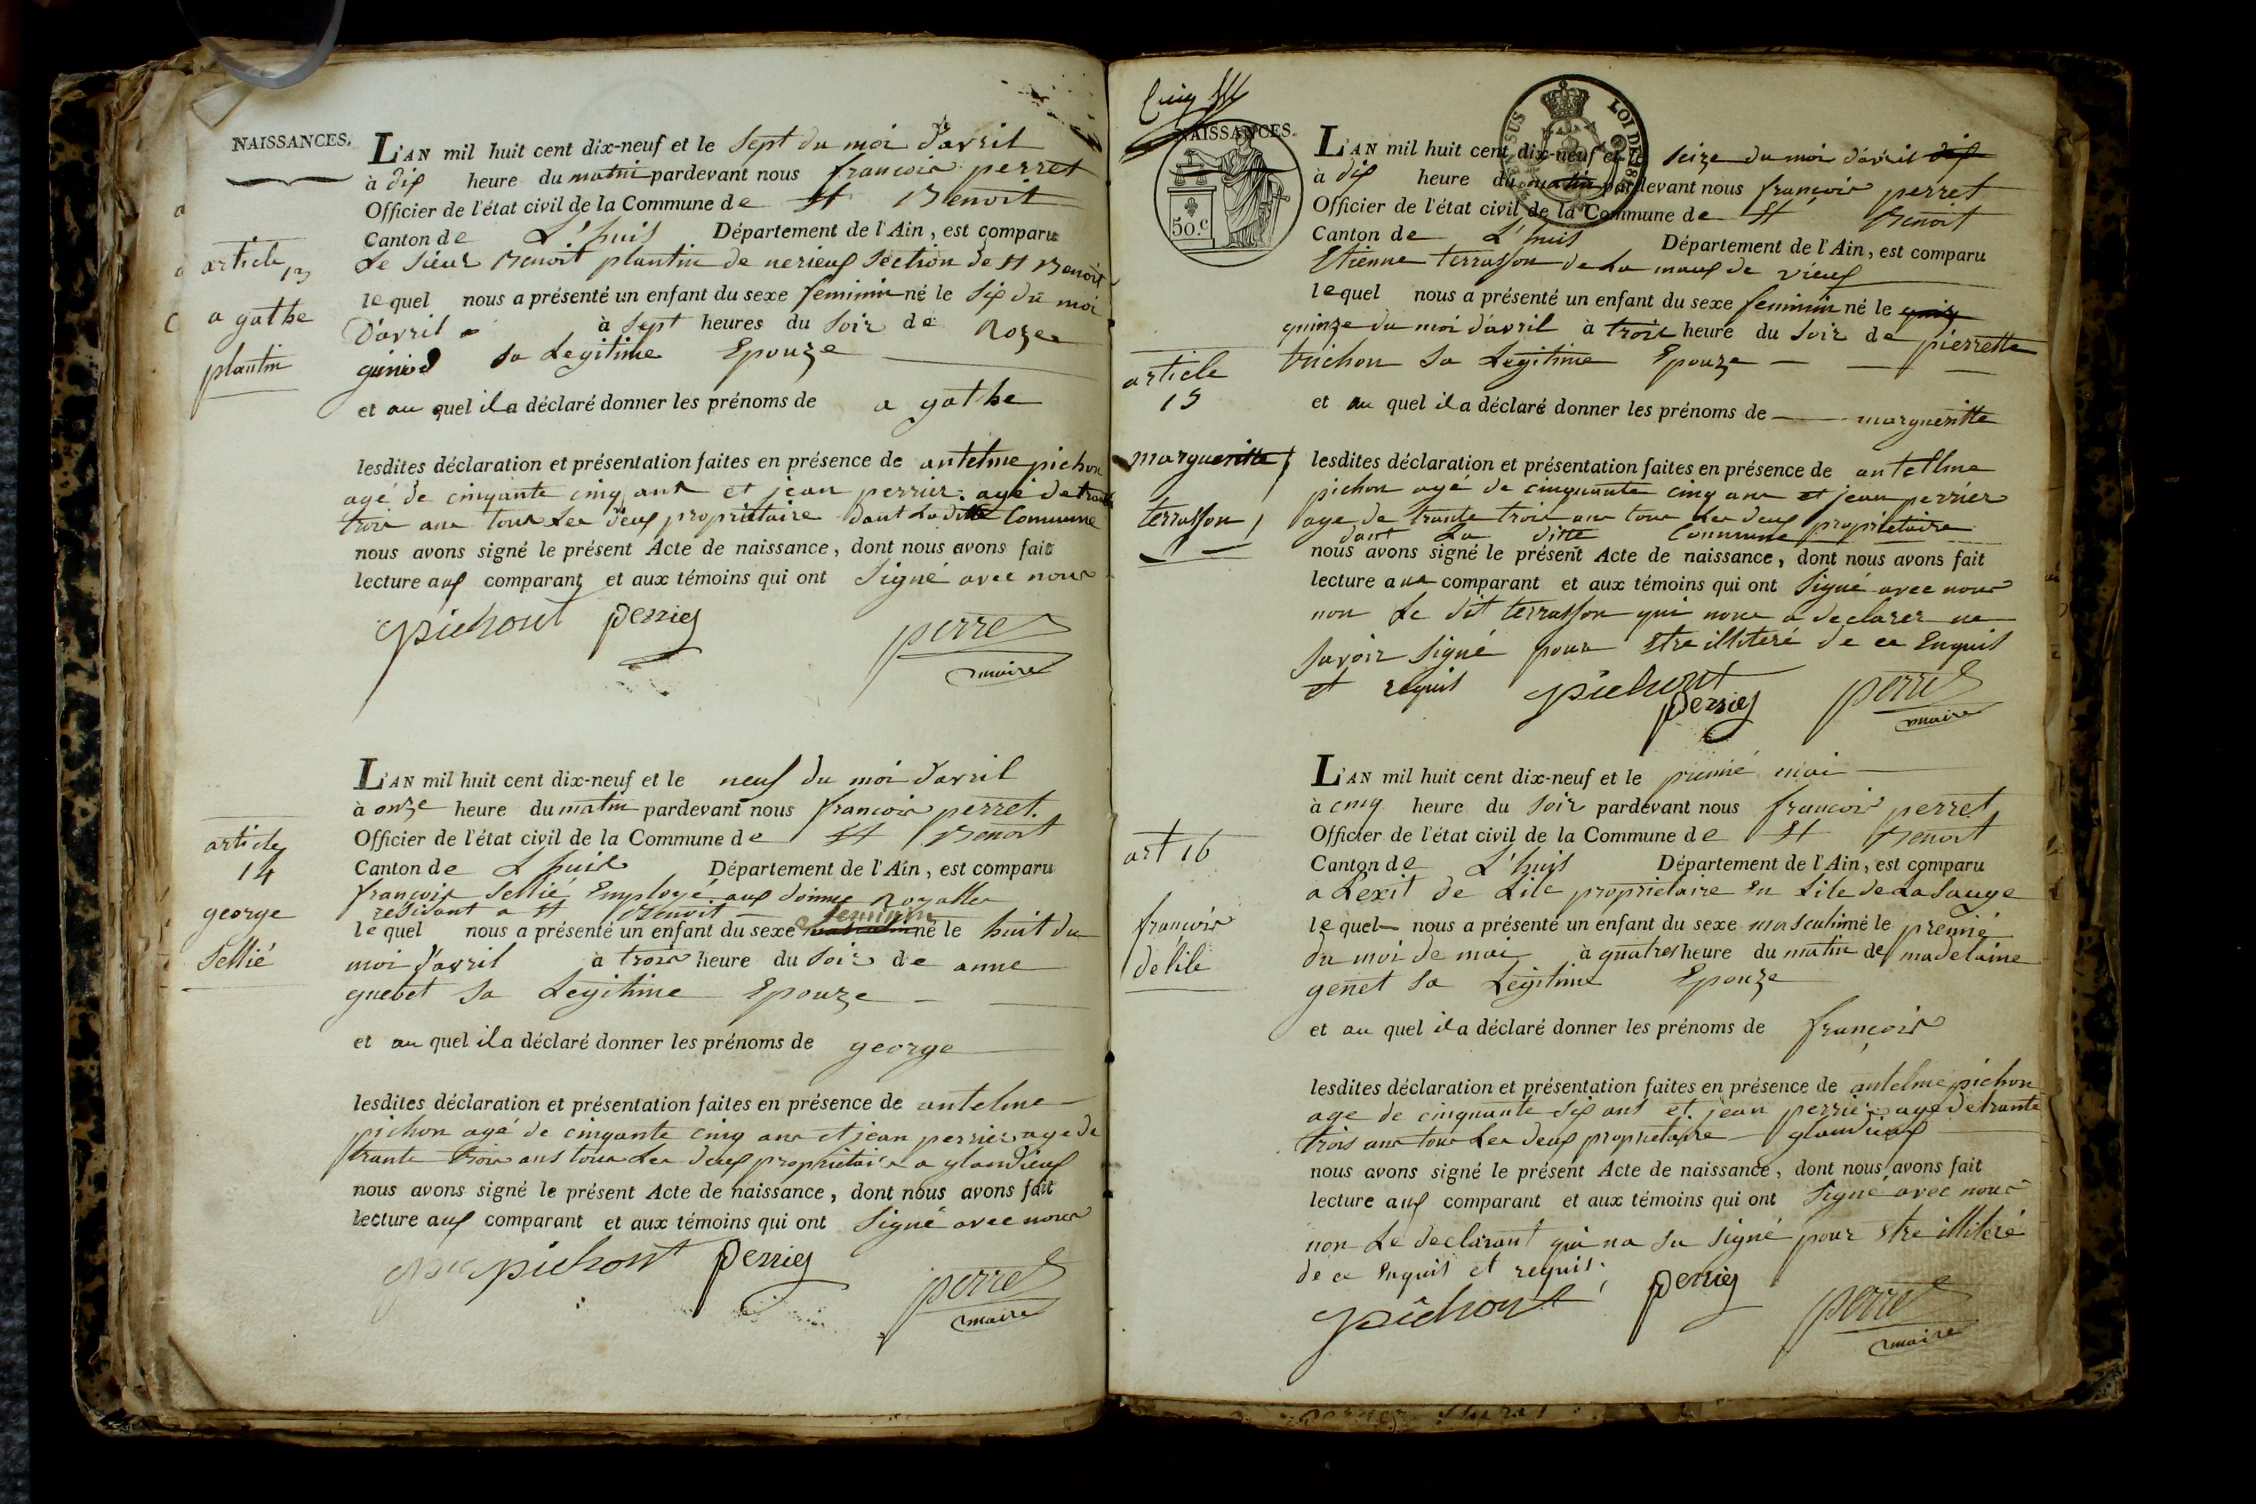 NAISSANCES.
L'AN mil huit cent dix-neuf et le sept du moi d'avril
à dix heure du matin pardevant nous francois perret
Officier de l'état civil de la Commune de St Benoit
Canton de L'huis Département de l'Ain, est comparu
Le sieur Benoit plantin de nerieux section de St Benoit
lequel nous a présenté un enfant du sexe feminin né le six du moi
D'avril à sept heures du soir de Roze
sa Legitime Epouze
et au quel il a déclaré donner les prénoms de agathe
lesdites déclaration et présentation faites en présence de antelme pichon
agé de cinqante cinq ans et jean perrier agé de trante
trois ans tous Les deux propriétaire dant Laditte Commune
nous avons signé le présent Acte de naissance, dont nous avons fait
lecture aux comparant et aux témoins qui ont signé avec nous
pichont perrier
perret
maire
article 13
agathe
plantin
L'AN mil huit cent dix-neuf et le neuf du moi d'avril
à onze heure du matin pardevant nous francois perret.
Officier de l'état civil de la Commune de St Benoit
Canton de L'huis Département de l'Ain, est comparu
francois sellié Employé aux Royalles
residant a St Benoit feminin
lequel nous a présenté un enfant du sexe masculin né le huit du
moi d'avril à trois heure du soir de anne
guebet sa Legitime Epouze
et au quel il a déclaré donner les prénoms de george
lesdites déclaration et présentation faites en présence de antelme
pichon agé de cinqante cinq ans et jean perrier age de
trante trois ans tous Les deux propriétaire a glandieux
nous avons signé le présent Acte de naissance, dont nous avons fait
lecture aux comparant et aux témoins qui ont signé avec nous
pichont perrier
perret
maire
article
14
george
sellié
NAISSANCES.
50.c
LOI DE 181
L'AN mil huit cent dix-neuf et le seize du moi d'avril dix
à dix heure du matin pardevant nous françois perret
Officier de l'état civil de la Commune de St Benoit
Canton de L'huis Département de l'Ain, est comparu
Etienne terrasson de La maux de vieux
lequel nous a présenté un enfant du sexe feminin né le quinz
quinze du moi d'avril à trois heure du soir de pierrette
trichon sa Legitime Epouze
et au quel il a déclaré donner les prénoms de margueritte
lesdites déclaration et présentation faites en présence de antellme
pichon agé de cinquante cinq ans et jean perrier
age de trante trois ans tous Les deux propriétaire
dant La ditte Commune
nous avons signé le présent Acte de naissance, dont nous avons fait
lecture aux comparant et aux témoins qui ont signé avec nous
non Le dit terrasson qui nous a declarer ne
savoir signé pour Etre illiteré de ce Enquit
et requit pichont
perrier perret
maire
article
15
margueritte
terrasson
L'AN mil huit cent dix-neuf et le premié mai
à cinq heure du soir pardevant nous francois perret
Officier de l'état civil de la Commune de St Benoit
Canton de L'huis Département de l'Ain, est comparu
aLexit de Lile propriétaire En Lile de La Sauge
lequel nous a présenté un enfant du sexe masculin né le premié
du moi de mai à quatres heure du matin de madelaine
genet sa Legitime Epouze
et au quel il a déclaré donner les prénoms de françois
lesdites déclaration et présentation faites en présence de antelme pichon
age de cinquante six ans et jean perrier age de trante
trois ans tous Les deux propriétaire glandieux
nous avons signé le présent Acte de naissance, dont nous avons fait
lecture aux comparant et aux témoins qui ont signé avec nous
non Le declarant qui na su signé pour Etre illiteré
de ce Enquit et requit.
pichont perrier
perret
maire
art 16
françois
delile